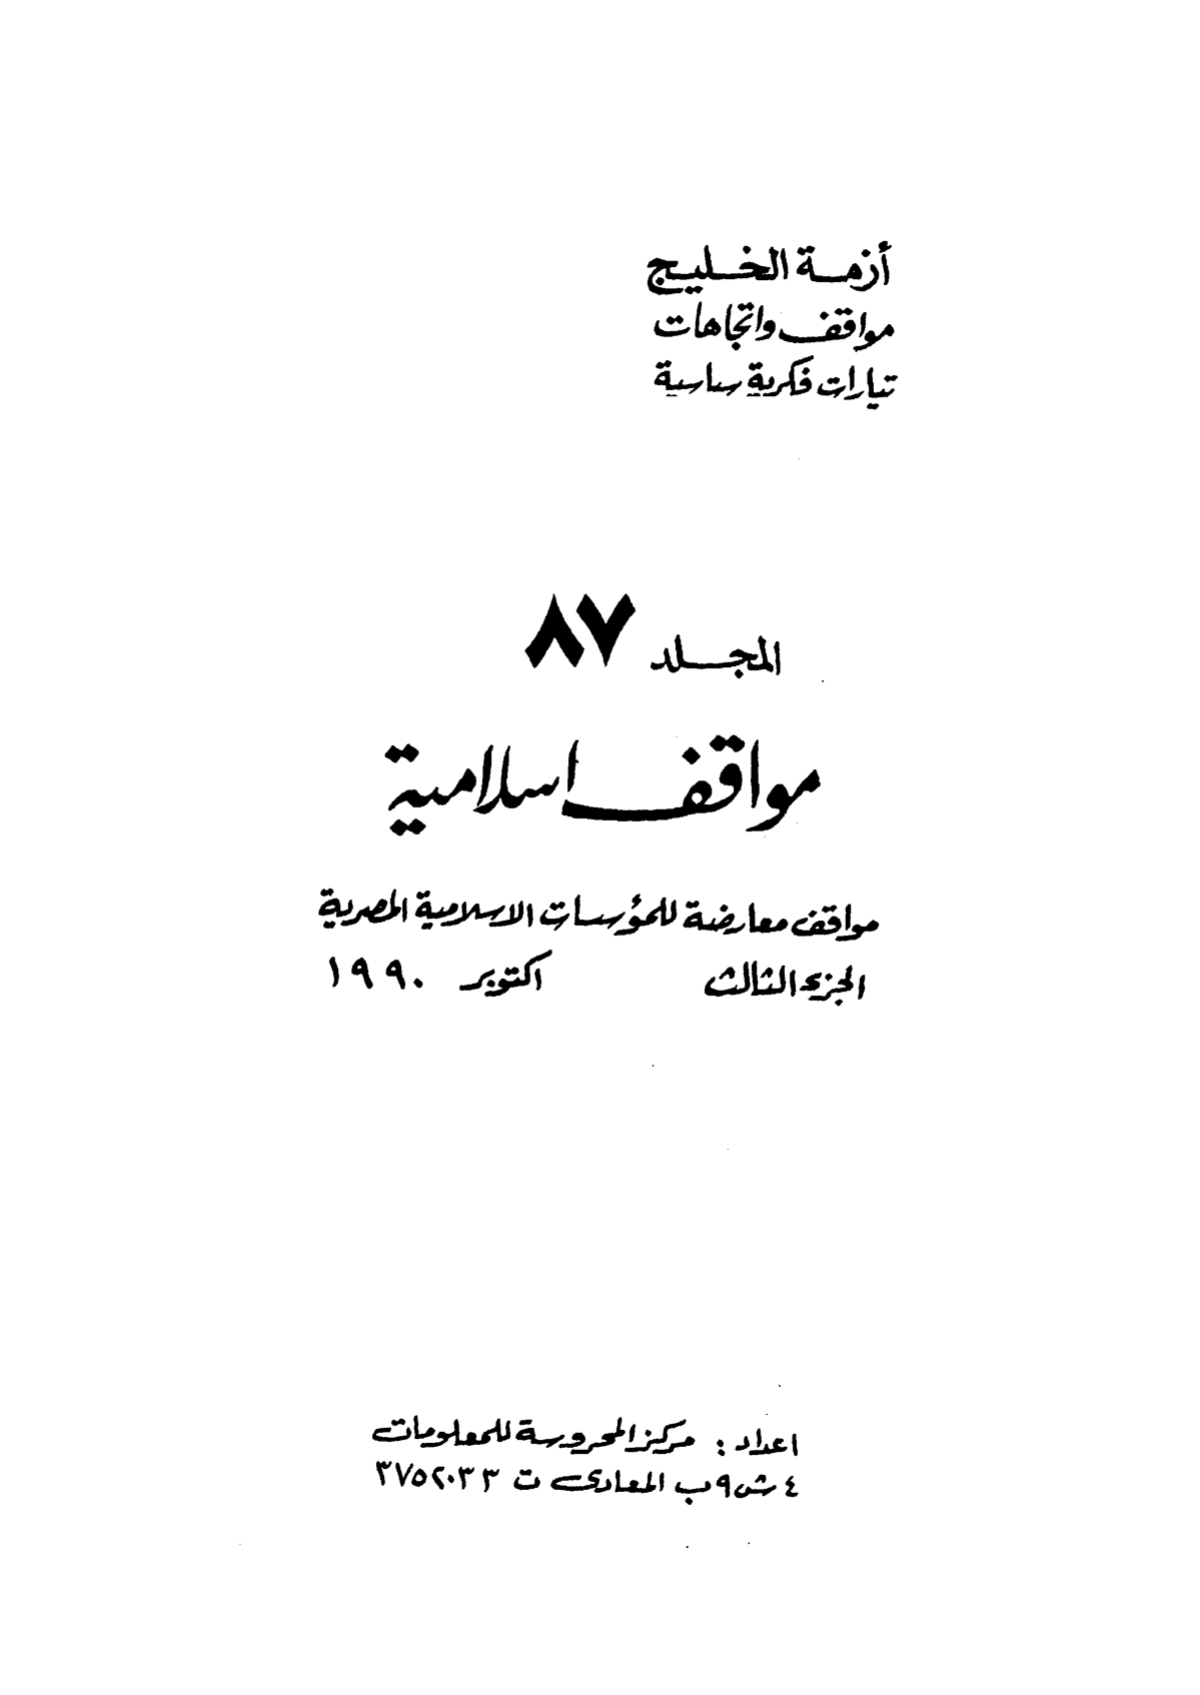 أزمة الخليج
مواقف واتجاهات
تيارات فكرية سياسية
المجلد ٨٧
مواقف اسلامية
مواقف معارضة للمؤسسات الاسلامية المصرية
الجزء الثالث اكتوبر ١٩٩٠
اعداد : مركز المحروسة للمعلومات
٤ ش ٩ب المعادى ت ٣٧٥٢٠٣٣